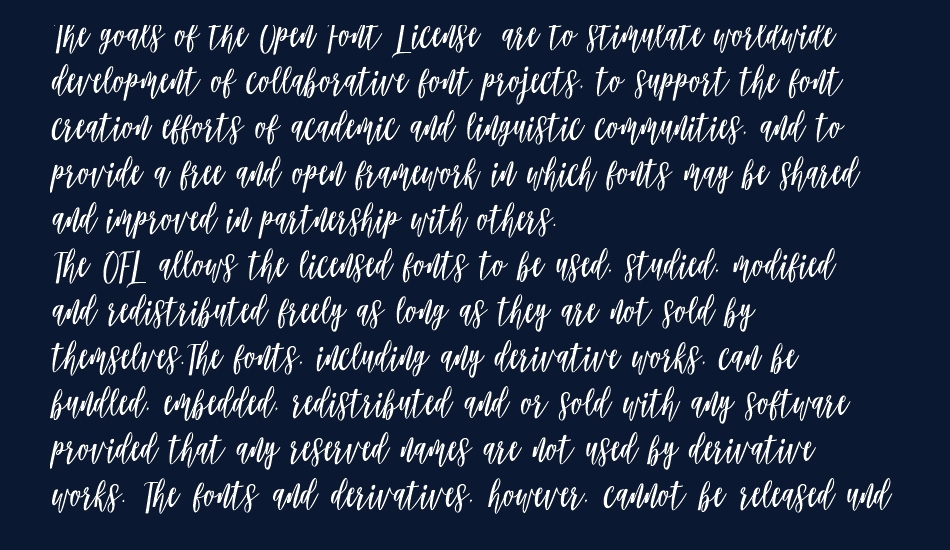 The goals of the Open Font License are to stimulate worldwide
development of collaborative font projects, to support the font
creation efforts of academic and linguistic communities, and to
provide a free and open framework in which fonts may be shared
and improved in partnership with others.
The OFL allows the licensed fonts to be used, studied, modified
and redistributed freely as long as they are not sold by
themselves.The fonts, including any derivative works, can be
bundled, embedded, redistributed and or sold with any software
provided that any reserved names are not used by derivative
works. The fonts and derivatives, however, cannot be released und